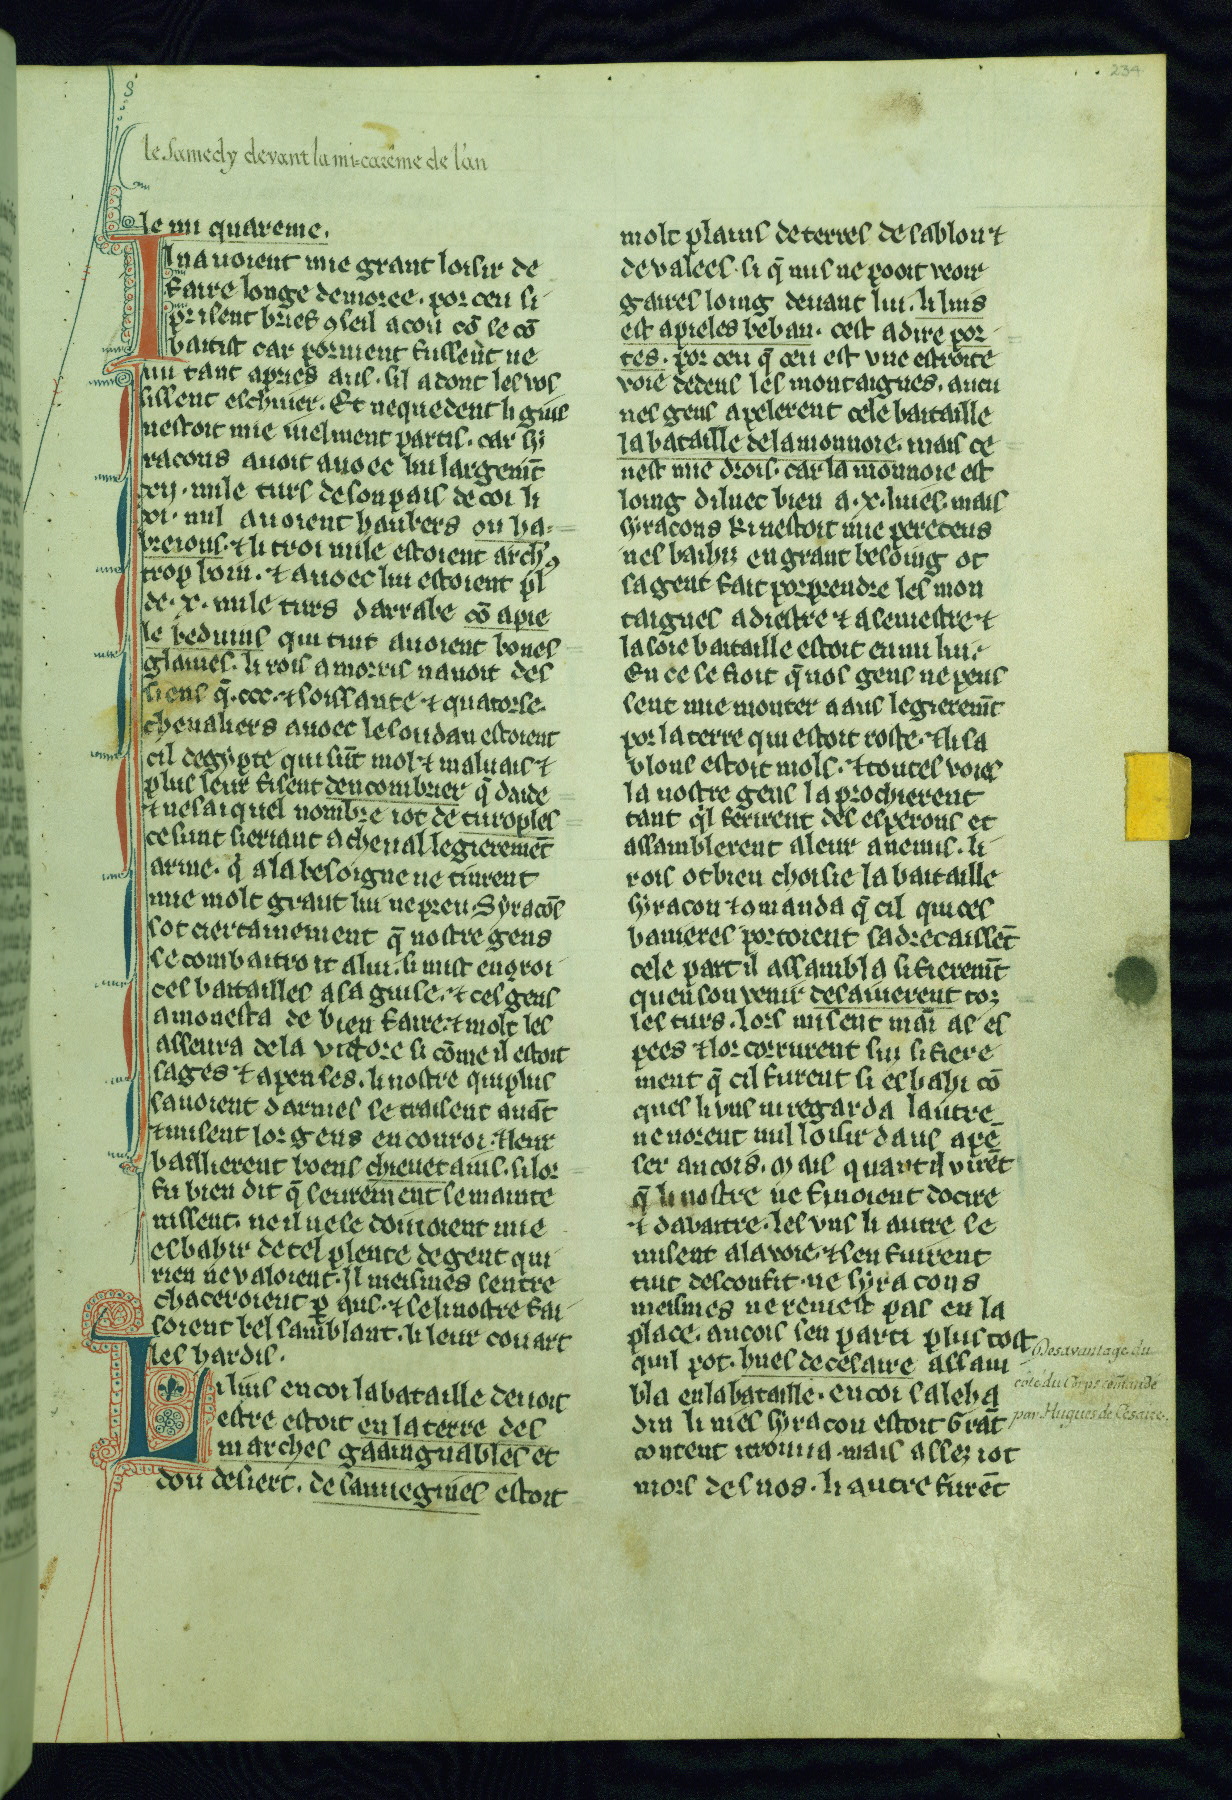 234
le Samedy devant la mi-carême de l'an
le mi quareme.
Il navoient mie grant loisir de
faire longe demoree. por ceu si
pristrent brief ɔseil a cou cō se cō
batist car porment fussēt ne
nu tant apries aus. sil adont les vos
sissent eschiuer. Et nequedent li gius
nestoit mie uielment partis. car sy
racons auoit auoec lui largemt̄
xij. mile turs de son pais de coi li
ix. mil auoient haubers ou ha
breions. ⁊ li troi mile estoient arch
trop boin. ⁊ auoec lui estoient pl
de .x. mile turs darrabe cō apie
le beduins qui tuit auoient bones
glaiues. li rois amorris nauoit des
siens q̄ .ccc. ⁊ soissante ⁊ quatorse
cheualiers auoec le soudan estoient
cil degypte qui sūt mol ⁊ maluais ⁊
plus leur fisent dencombrier q̄ daide
⁊ ne sai quel nombre iot de turoples
ce sunt sieriant a cheual legieremēt
arme. q̄ a la besoigne ne tinrent
mie molt grant liu ne preu. Syracōs
sot ciertainement q̄ nostre gens
se combatroit a lui. si mist en ɔroi
ces batailles a sa guise. ⁊ ces gens
amonesta de bien faire ⁊ molt les
asseura de la victore si cōme il estoit
sages ⁊ apenses. li nostre qui plus
sauoient darmes se traisent auāt
⁊ misent lor gens en couroi. ⁊ leur
baillierent boens chieuetains. si lor
fu bien dit q̄ seurement se mainte
nissent. ne il ne se douioient mie
esbahir de tel plente de gent qui
rien ne valoient. Il meismes sentre
chaceroient p aus. ⁊ se li nostre fai
soient bel samblant. li leur couart
les hardis.
Li luis en coi la bataille deuoit
estre estoit en la terre des
marches gaaingnables et
dou desiert. de sauuegines estoit
molt plains de terres de sablon ⁊
de valees. si q̄ nus ne pooit veoir
gaires loing deuant lui. li luis
est apieles beban. cest a dire por
tes. por ceu q̄ ceu est vne estroite
voie dedens les montaignes. aucu
nes gens apelerent cele bataille
la bataille de la monnoie. mais ce
nest mie drois. car la monnoie est
loing diluec bien a .x. liues. mais
syracons ki nestoit mie pereceus
nes baihis en grant besoing ot
sa gent fait porprendre les mon
taignes a diestre ⁊ a seniestre ⁊
la soie bataille estoit en mi liu.
En ce se fioit q̄ nos gens ne peus
sent mie monter a aus legieremt̄
por la terre qui estoit roste. ⁊ li sa
blons estoit mols. ⁊ toutes voies
la nostre gens la prochierent
tant qͥl ferirent des esperons et
assamblerent a leur anemis. li
rois ot bien choisie la bataille
syracon ⁊ omanda q̄ cil qui ces
banieres portoient sadrecaissēt
cele part il assambla si fieremt̄
quen souuenir desauierent toz
les turs. lors misent maī as es
pees ⁊ lor corrurent sus si fiere
ment q̄ cil furent si esbahi cō
ques li vns ni regarda lautre
ne norent nul loisir daus apē
ser ancois. Mais quant il virēt
q̄ li nostre ne finoient docire
⁊ dabattre. les vns li autre se
misent a la voie. ⁊ sen fuirent
tuit desconfit. ne syracons
meismes ne remest pas en la
place. ancois sen parti plus tost
quil pot. hues de cesaire assam
bla en la bataille. en coi saleha
din li nies syracon estoit Grāt
content i trouua. mais assez iot
mors des nos. li autre furēt
Desavantage du
cote du Corps comandé
par Hugues de Césaire.